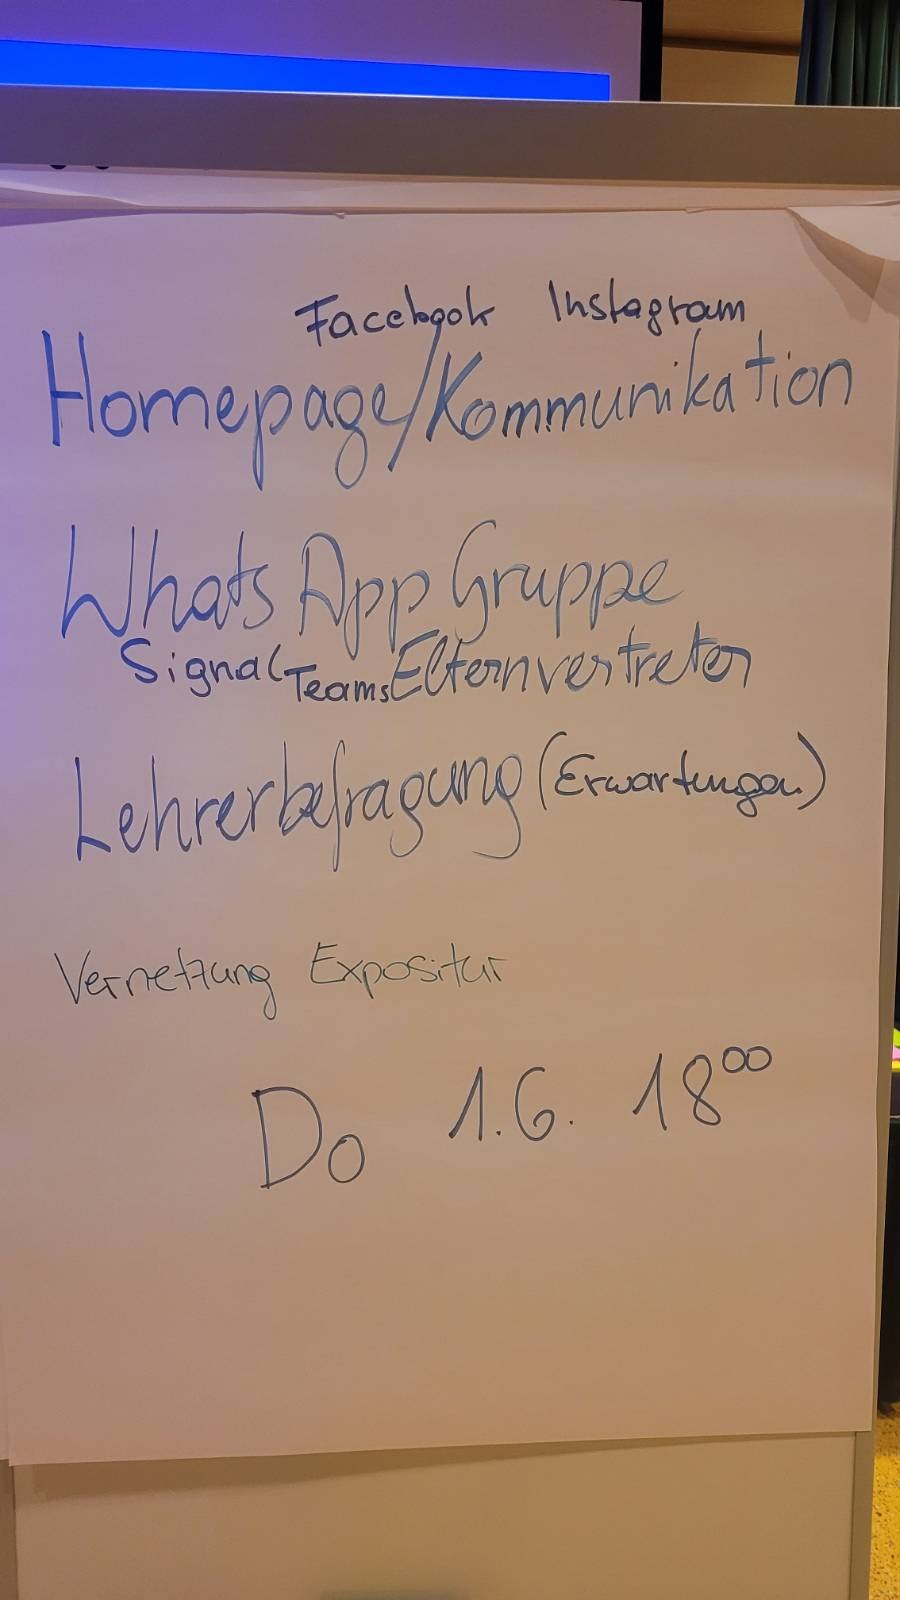 Facebook Instagram
Homepage/Kommunikation
WhatsApp Gruppe
Signal Teams Elternvertreter
Lehrerbefragung (Erwartungen)
Vernetzung Expositur
Do 1.6. 18⁰⁰